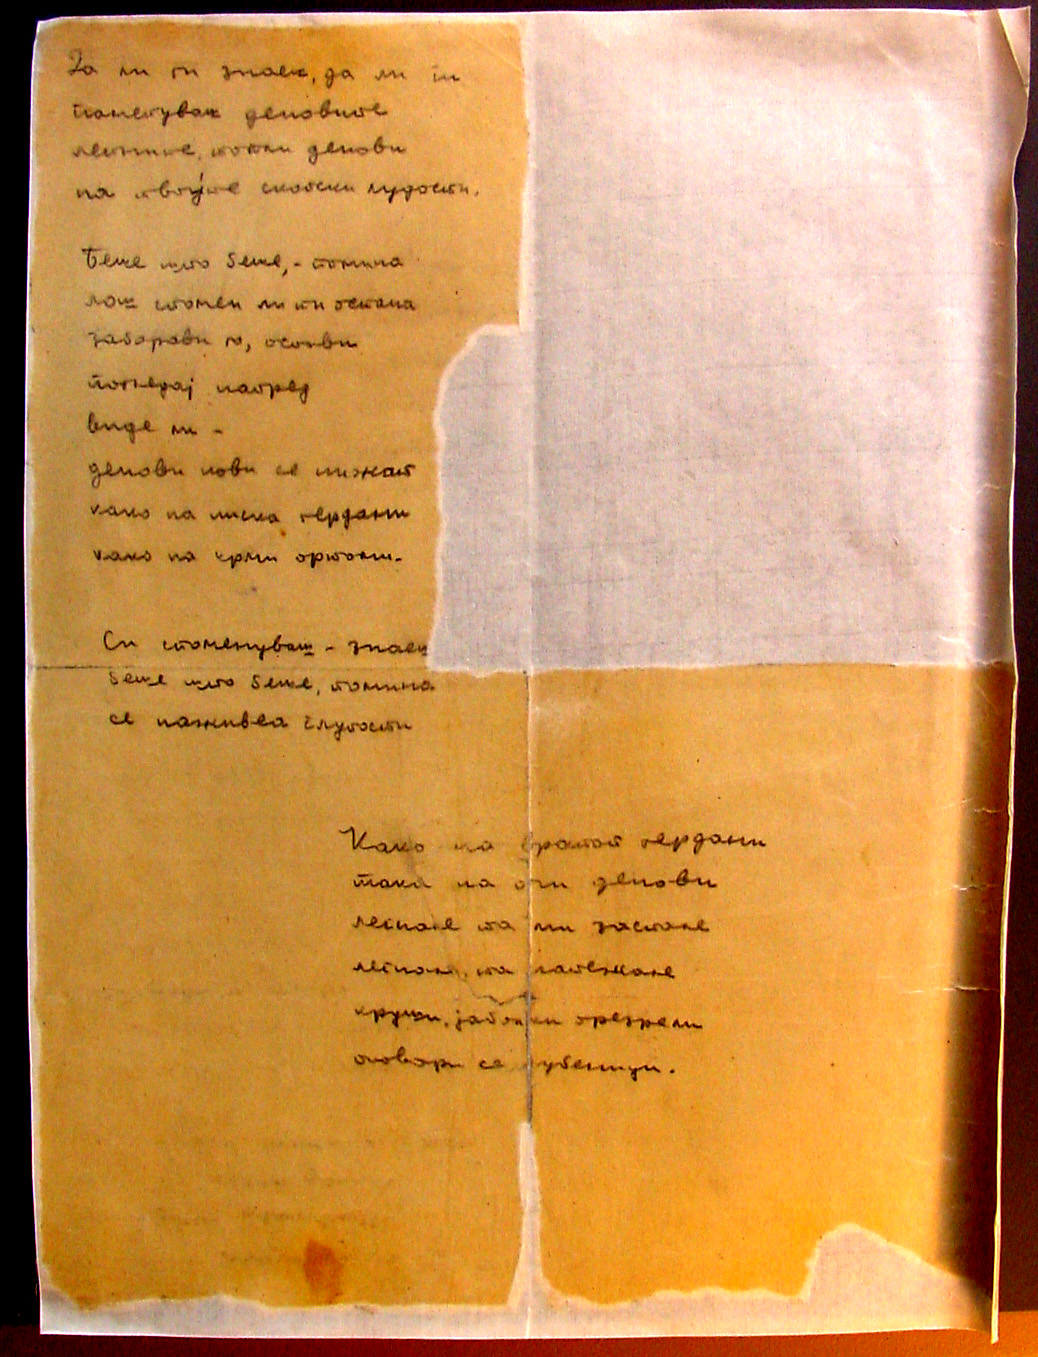 Да ли ги знаеш, да ли ги
паметуваш деновите
летните, топли денови
на твојте скопски лудости.
Беше што беше, - помина
лош спомен ли ти остана
заборави го, остави
погледај напред
виде ли -
денови нови се нижат
како на ниска гердани
како на орли
Си споменуваш - знаеш
беше што беше, помина
се наживеа глупости
Како на вратот гердани
така на очи денови
летнале та ми застанале
летнале, та належале
круши, јаболки презрели
отвори се лубеници.